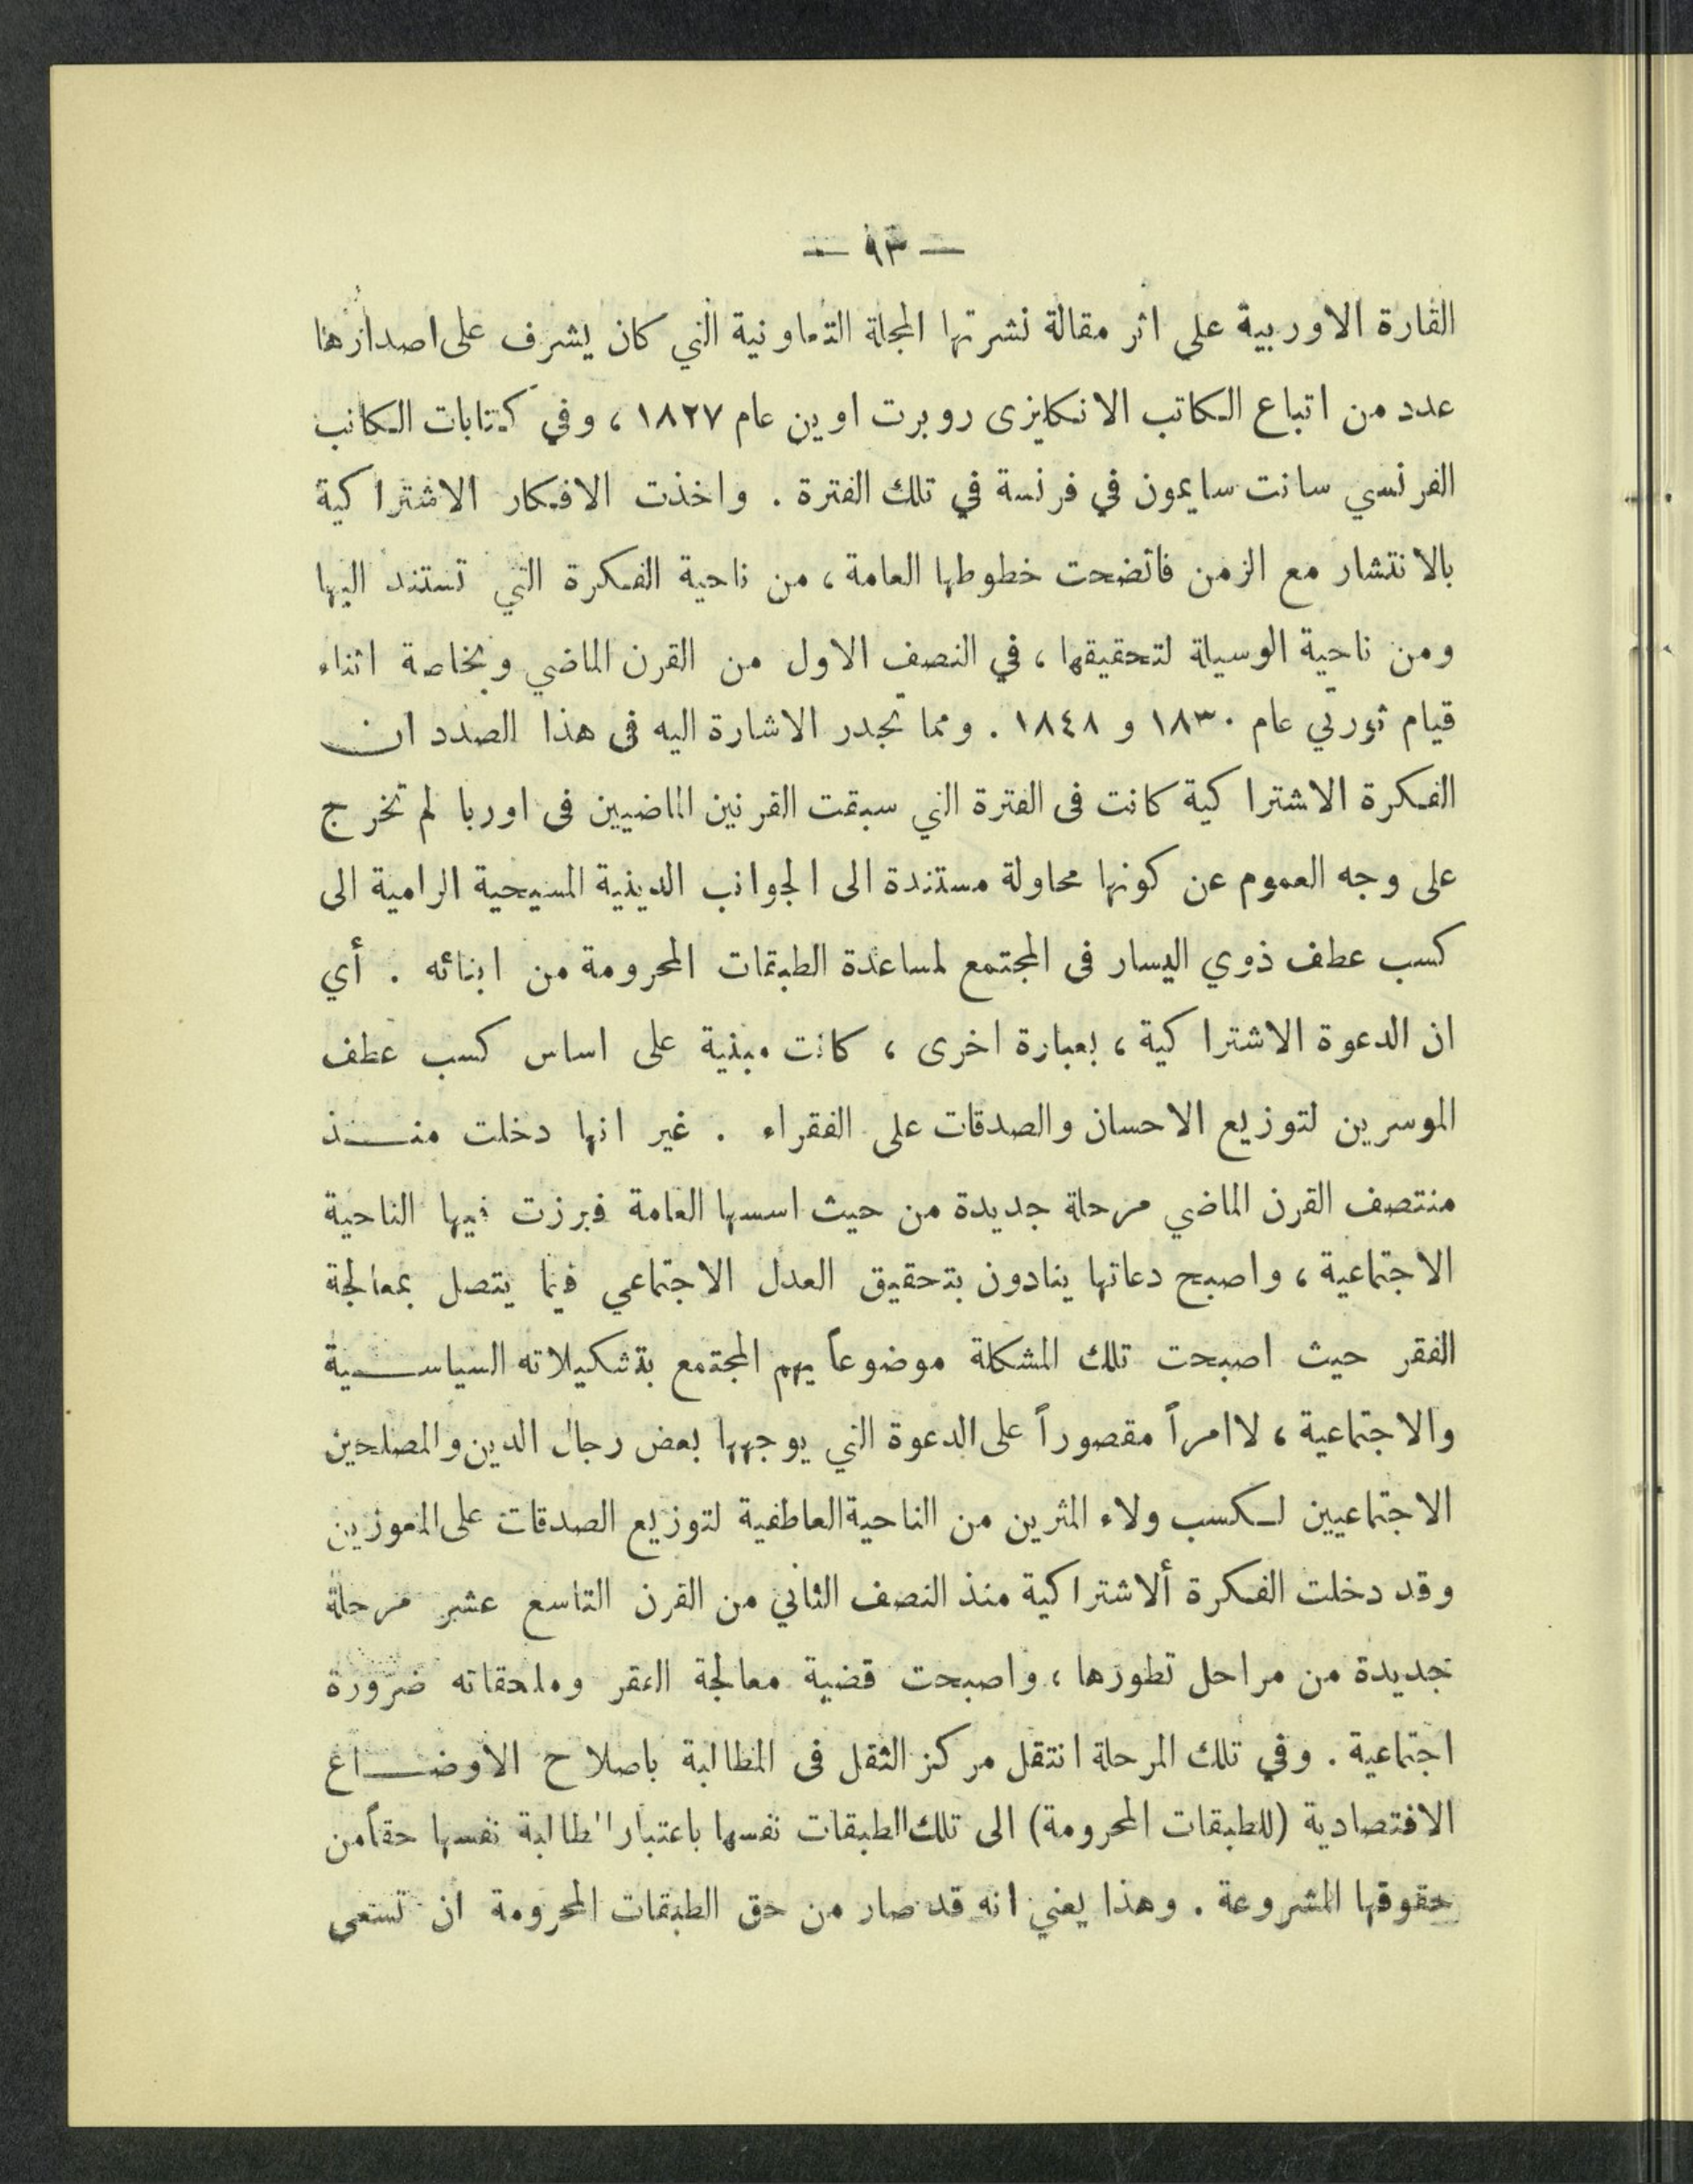 — ٩٣ —
القارة الاوربية على اثر مقالة نشرتها المجلة التعاونية التي كان يشرف على اصدارها
عدد من اتباع الكاتب الانكليزى روبرت اوين عام ١٨٢٧ ، وفي كتابات الكاتب
الفرنسي سانت سايمون في فرنسة في تلك الفترة . واخذت الافكار الاشتراكية
بالانتشار مع الزمن فاتضحت خطوطها العامة ، من ناحية الفكرة التي تستند اليها
ومن ناحية الوسيلة لتحقيقها ، في النصف الاول من القرن الماضي وبخاصة اثناء
قيام ثورتي عام ١٨٣٠ و ١٨٤٨ . ومما تجدر الاشارة اليه فى هذا الصدد ان
الفكرة الاشتراكية كانت فى الفترة التي سبقت القرنين الماضيين فى اوربا لم تخرج
على وجه العموم عن كونها محاولة مستندة الى الجوانب الدينية المسيحية الرامية الى
كسب عطف ذوي اليسار فى المجتمع لمساعدة الطبقات المحرومة من ابنائه . أي
ان الدعوة الاشتراكية ، بعبارة اخرى ، كانت مبنية على اساس كسب عطف
الموسرين لتوزيع الاحسان والصدقات على الفقراء . غير انها دخلت منذ
منتصف القرن الماضي مرحلة جديدة من حيث اسسها العامة فبرزت فيها الناحية
الاجتماعية ، واصبح دعاتها ينادون بتحقيق العدل الاجتماعي فيما يتصل بمعالجة
الفقر حيث اصبحت تلك المشكلة موضوعاً يهم المجتمع بتشكيلاته السياسية
والاجتماعية ، لا امراً مقصوراً على الدعوة التي يوجهها بعض رجال الدين والمصلحين
الاجتماعيين لكسب ولاء المثرين من الناحية العاطفية لتوزيع الصدقات على المعوزين
وقد دخلت الفكرة ألاشتراكية منذ النصف الثاني من القرن التاسع عشر مرحلة
جديدة من مراحل تطورها ، واصبحت قضية معالجة الفقر وملحقاته ضرورة
اجتماعية . وفي تلك المرحلة انتقل مركز الثقل فى المطالبة باصلاح الاوضاع
الاقتصادية (للطبقات المحرومة) الى تلك الطبقات نفسها باعتبار المطالبة نفسها حقاً من
حقوقها المشروعة . وهذا يعني انه قد صار من حق الطبقات المحرومة ان تسعى